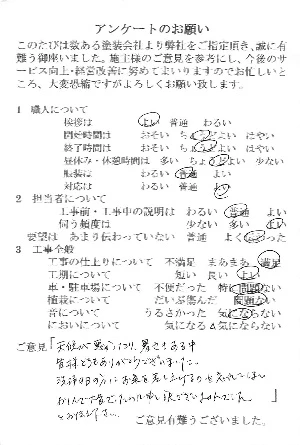 アンケートのお願い
このたびは数ある塗装会社より弊社をご指定頂き、誠に有
難う御座いました。施主様のご意見を参考にし、今後のサ
ービス向上・経営改善に努めてまいりますのでお忙しいと
ころ、大変恐縮ですがよろしくお願い致します。
1 職人について
挨拶は よい 普通 わるい
開始時間は おそい ちょうどよい はやい
終了時間は おそい ちょうどよい はやい
昼休み・休憩時間は 多い ちょうどよい 少ない
服装は わるい 普通 よい
対応は わるい 普通 よい
2 担当者について
工事前・工事中の説明は わるい 普通 よい
伺う頻度は 少ない 多い よい
要望は あまり伝わっていない 普通 よく伝わった
3 工事全般
工事の仕上りについて 不満足 まあまあ 満足
工期について 短い 長い よい
車・駐車場について 不便だった 特に問題ない
植栽について だいぶ傷んだ 問題ない
音について うるさかった 気にならない
においについて 気になる 気にならない
ご意見「天候が悪かったり、暑さもある中
皆様どうもありがとうございました。
」
ご意見有難うございました。